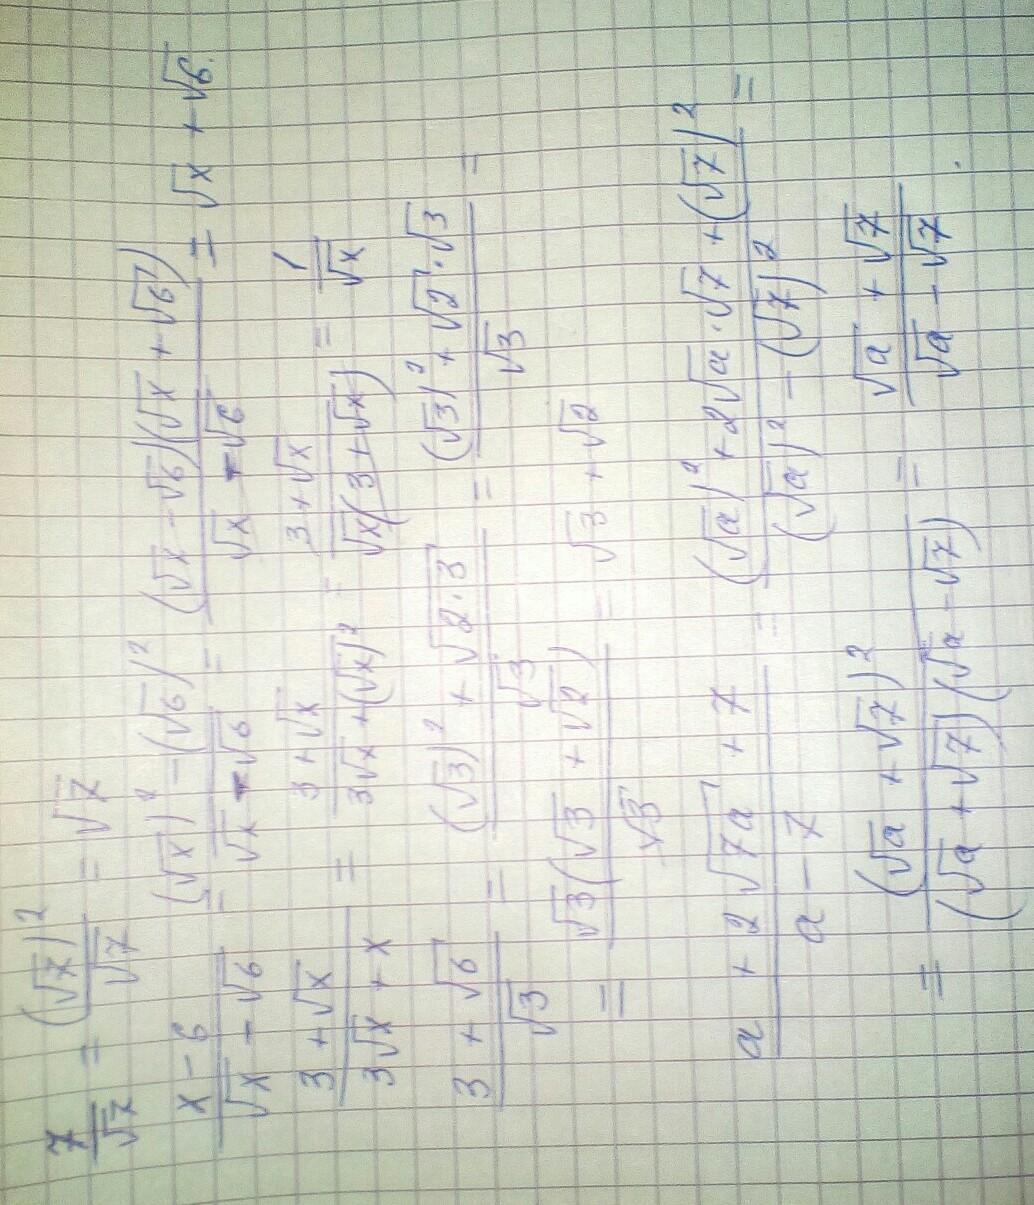 7/√7 = (√7)²/√7 = √7
x - 6/√x - √6 = (√x)² - (√6)²/√x - √6 = (√x - √6)(√x + √6)/√x - √6 = √x + √6.
3 + √x/3√x + x = 3 + √x/3√x + (√x)² = 3 + √x/√x(3 + √x) = 1/√x
3 + √6/√3 = (√3)² + √2·3/√3 = (√3)² + √2·√3/√3 =
= √3(√3 + √2)/√3 = √3 + √2
a + 2√7a + 7/a - 7 = (√a)² + 2√a·√7 + (√7)²/(√a)² - (√7)² =
= (√a + √7)²/(√a + √7)(√a - √7) = √a + √7/√a - √7.